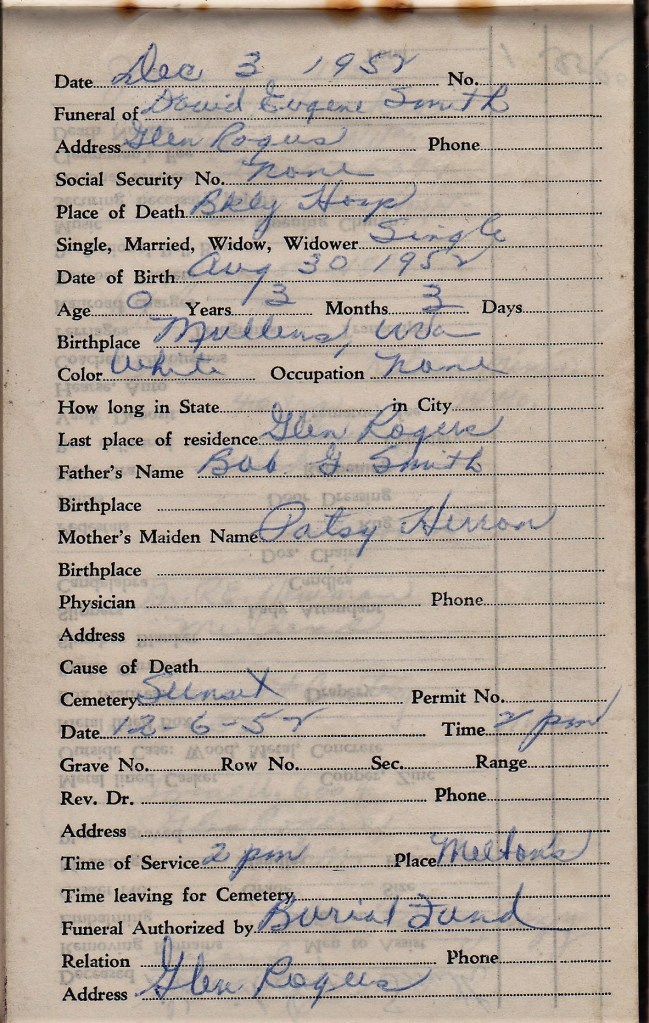 Date Dec 3 1952 No.
Funeral of David Eugene Smith
Address Glen Rogers Phone
Social Security No. none
Place of Death Bkly Hosp
Single, Married, Widow, Widower Single
Date of Birth Aug 30 1952
Age 0 Years 3 Months 3 Days
Birthplace Mullens, WVa
Color White Occupation none
How long in State in City
Last place of residence Glen Rogers
Father's Name Bob G Smith
Birthplace
Mother's Maiden Name Patsy Herron
Birthplace
Physician Phone
Address
Cause of Death
Cemetery Sunset Permit No.
Date 12-6-52 Time 2 pm
Grave No. Row No. Sec. Range
Rev. Dr. Phone
Address
Time of Service 2 pm Place Melton's
Time leaving for Cemetery
Funeral Authorized by Burial Fund
Relation Phone
Address Glen Rogers